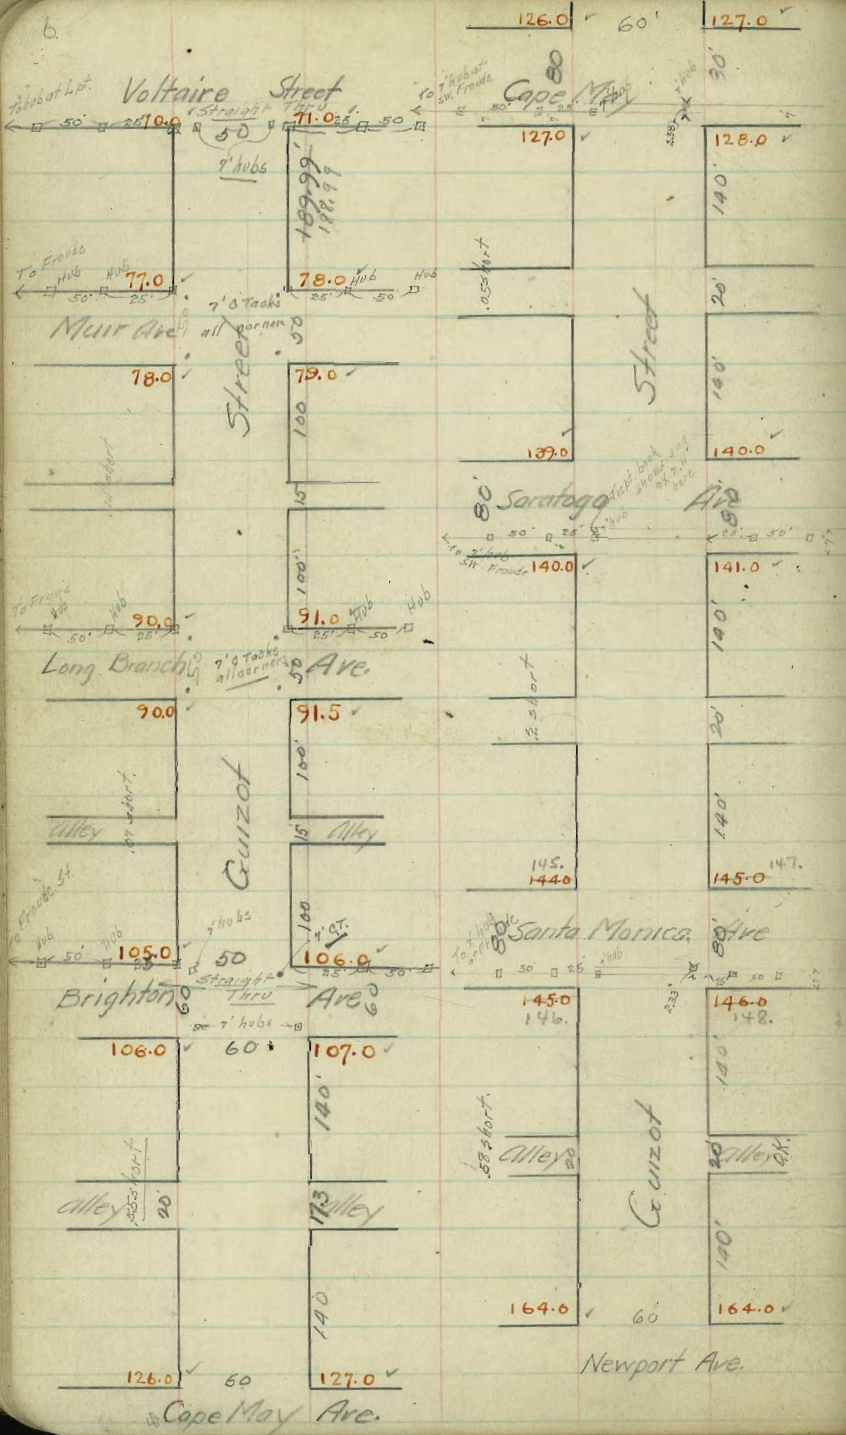 6.
Voltaire Street
Straight Thru
50' 25' 70.0 50 71.0 25' 50
7' hubs
189.99'
188.99
To Froude
Hub Hub 77.0 78.0 Hub Hub
50' 25' 25' 50'
7' O Tacks
all corners
Muir Ave
50
Street
78.0 79.0
100
15
100'
To Froude
Hub Hub 90.0 91.0 Hub Hub
50' 25' 25' 50
Long Branch Ave.
7' O Tacks
all corners
50
90.0 91.5
100'
.07 short
Alley 15 Alley
Guizot
100
To Froude St.
Hub Hub 7' hubs
50' 105.0 50 106.0
25' 50'
Straight
Thru
Brighton Ave
60 60
7' hubs
106.0 60 107.0
140'
.55 short
Alley 20' 17.3 Alley
140
126.0 60 127.0
Cape May Ave.
126.0 60' 127.0
80 30'
Cape May
To 7' hub at
SW. Froude
50' 25' 7' hub
2.38'
127.0 128.0
140'
.05 short
20'
Street
140'
139.0 140.0
80' Saratoga Ave 80'
50' 25' 25' 50'
To 7' hub
SW Froude
140.0 141.0
140'
.2 short
20'
140'
145. 147.
144.0 145.0
80' Santa Monica Ave 80'
50 25' 7' hub 25 50
2.23'
145.0 146.0
146. 148.
140'
.58 short.
Alley 20 20' Alley O.K.
Guizot
140'
164.0 60 164.0
Newport Ave.